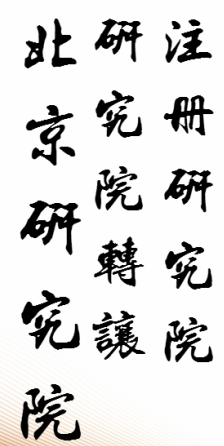 注册研究院
研究院轉讓
北京研究院